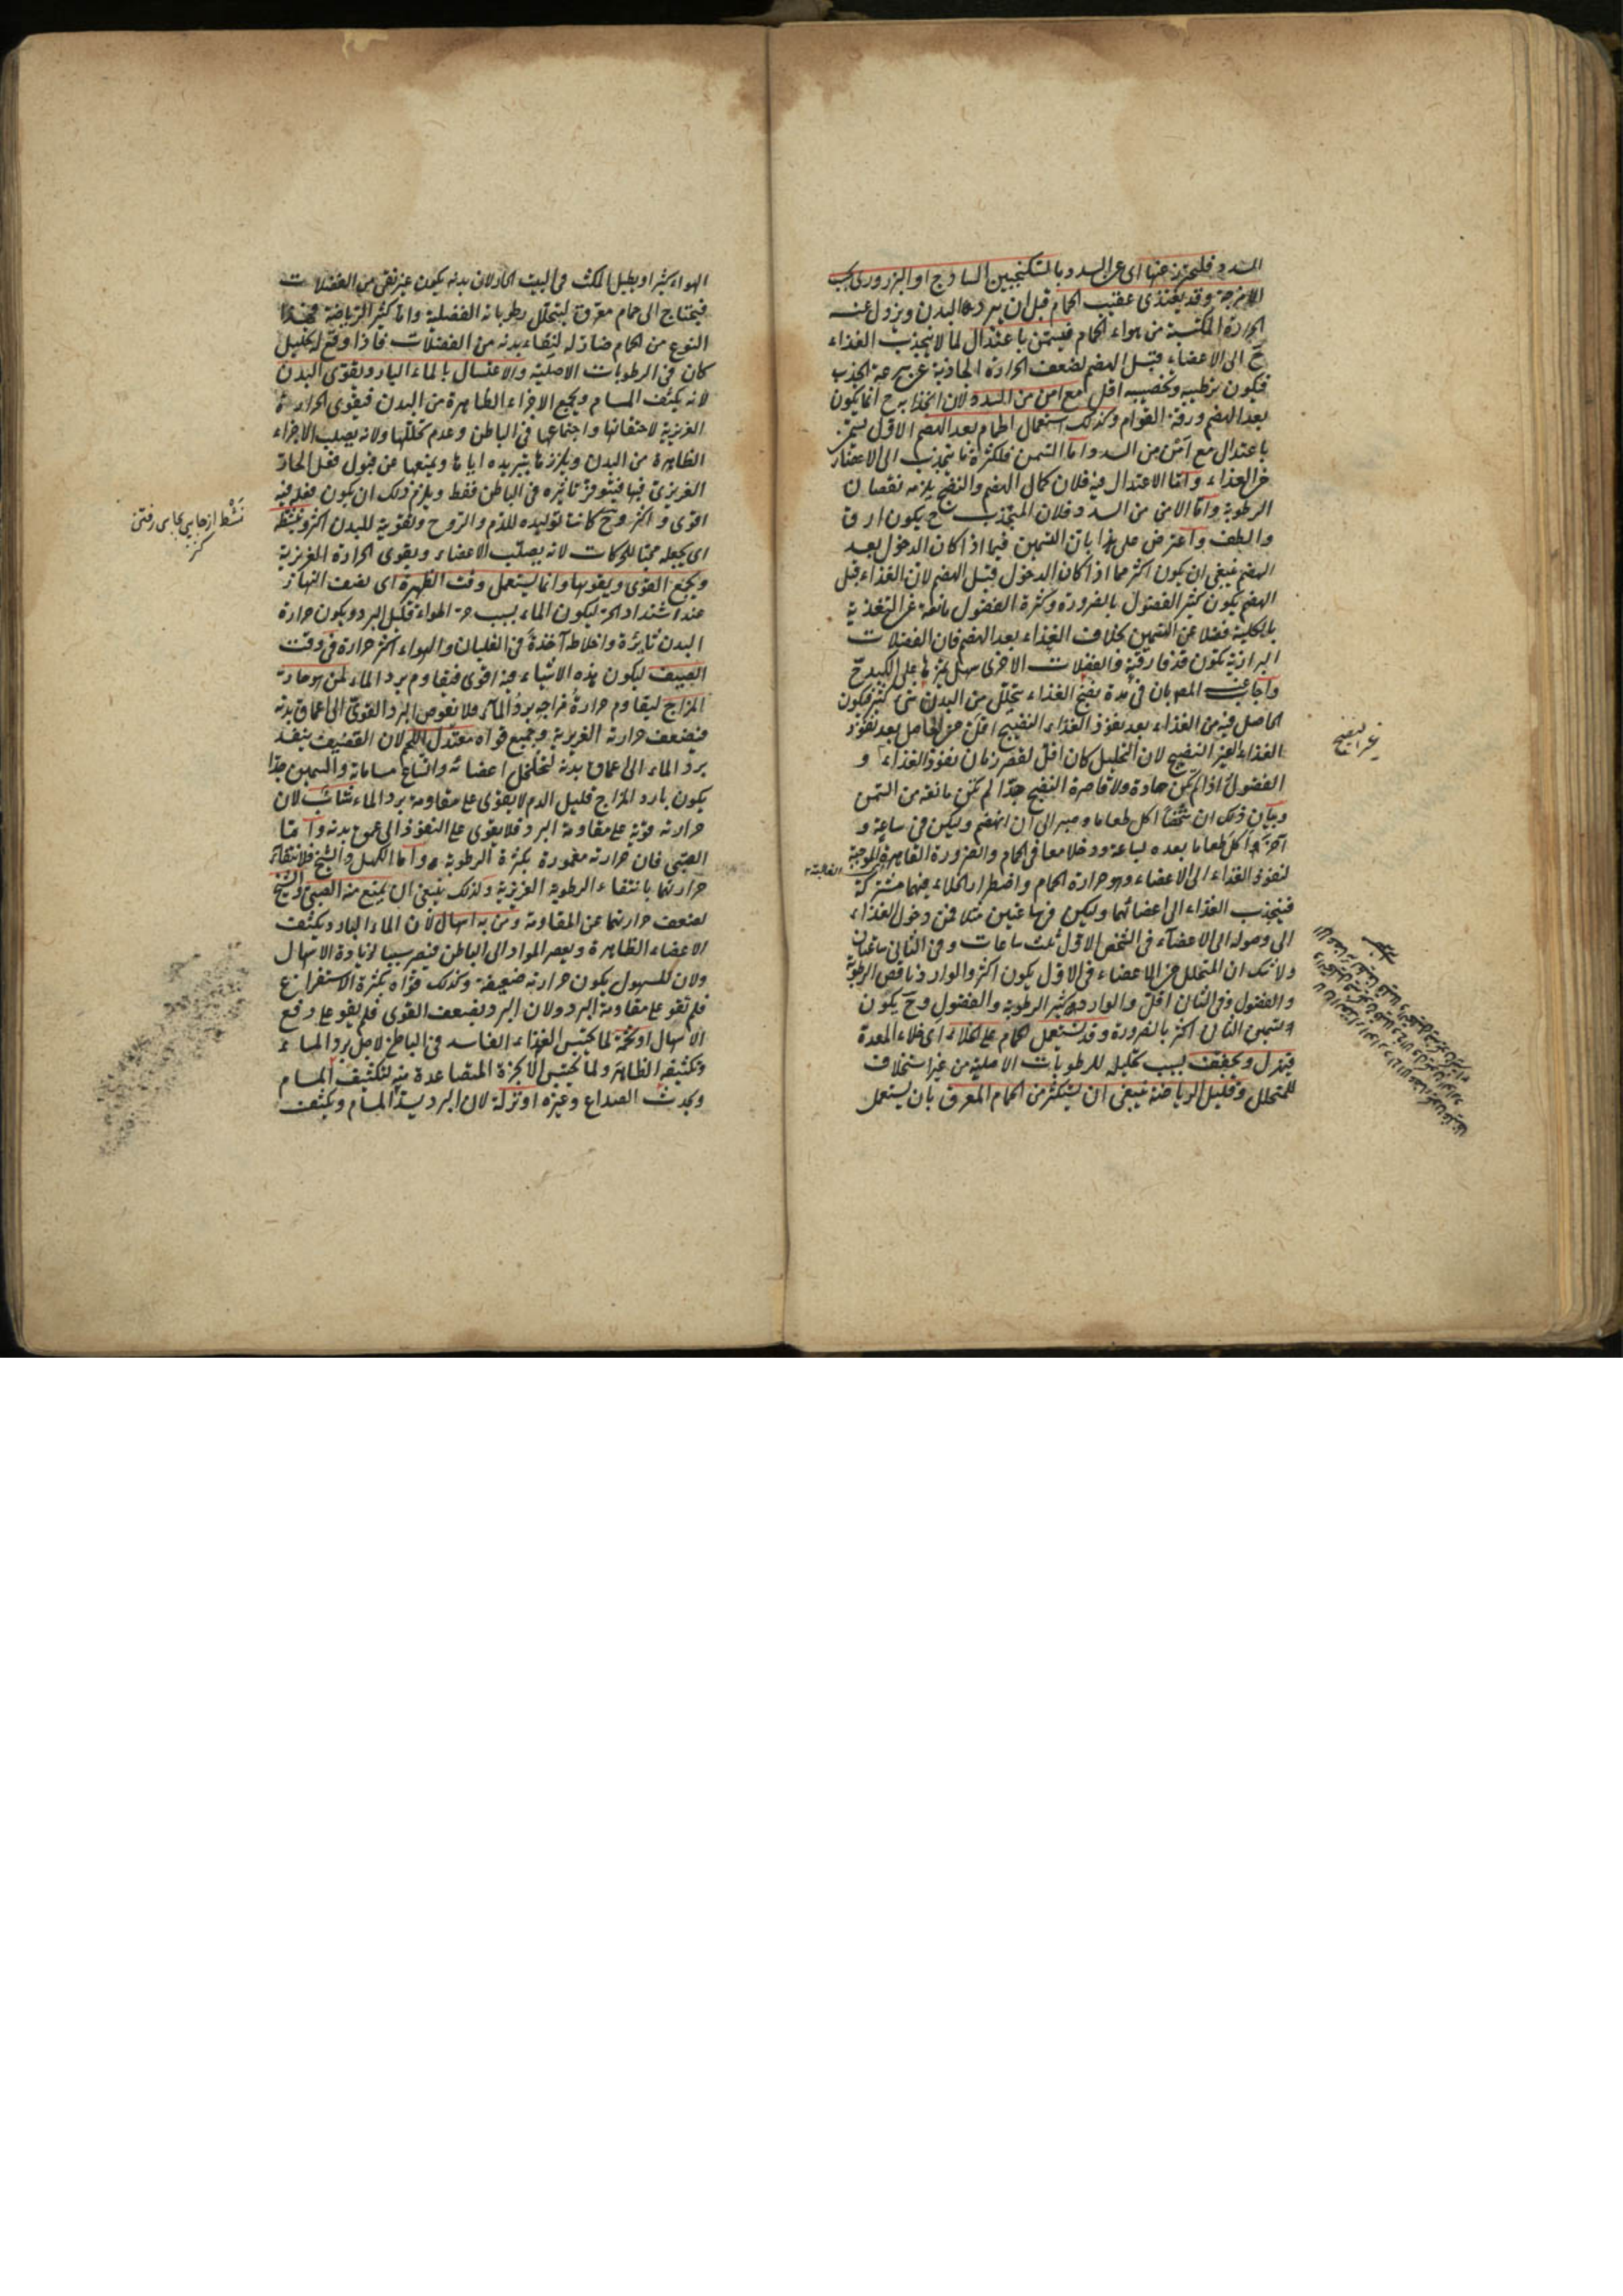 السدد فليحترز عنها اى عن السدد بالسكنجبين الساذج او البزورى بحسب
الامزجة وقد يغتذى عقيب الحمام قبل ان يبرد البدن ويزول عنه
الحرارة المكتسبة من هواء الحمام فيسمن باعتدال لما لا ينجذب الغذاء
ح الى الاعضاء قبل الهضم لضعف الحرارة الجاذبة عن سرعة الجذب
فيكون ترطيبه وتخصيبه اقل مع امن من السدد لان انجذابه ح انما يكون
بعد الهضم ورقة القوام وكذلك استعمال الحمام بعد الهضم الاول يسمن
باعتدال مع امن من السدد اما التسمن فلكثرة ما ينجذب الى الاعضاء
من الغذاء واما الاعتدال فيه فلان كمال الهضم والنضج يلزمه نقصان
الرطوبة واما الامن من السدد فلان المنجذب ح يكون ارق
والطف واعترض على هذا بان التسمين فيما اذا كان الدخول بعد
الهضم ينبغى ان يكون اكثر مما اذا كان الدخول قبل الهضم لان الغذاء قبل
الهضم يكون كثير الفضول بالضرورة وكثرة الفضول مانعة عن التغذية
بالكلية فضلا عن التسمين بخلاف الغذاء بعد الهضم فان الفضلات
البرازية تكون قد فارقته والفضلات الاخرى سهل تميزها على الكبد ح
واجاب عنه المصـ بان فى مدة نضج الغذاء يتحلل من البدن شئ كثير فيكون
الحاصل فيه من الغذاء بعد نفوذ الغذاء النضيج اقل من الحاصل بعد نفوذ
الغذاء الغير النضيج لان التحليل كان اقل لقصر زمان نفوذ الغذاء و
الفضول اذا لم تكن حادة ولا قاصرة النضج جدا لم تكن مانعة من التسمن
وبيان ذلك ان شخصا اكل طعاما وصبر الى ان انهضم وليكن فى ساعة و
آخر اكل طعاما بعده لساعة ودخلا معا فى الحمام والضرورة القاهرة الموجبة
لنفوذ الغذاء الى الاعضاء وهو حرارة الحمام واضطرار الخلاء فيهما مشتركة
فينجذب الغذاء الى اعضائهما وليكن فى ساعتين مثلا فمن دخول الغذاء
الى وصوله الى الاعضاء فى الشخص الاول ثلث ساعات وفى الثانى ساعتان
ولا شك ان المتحلل من الاعضاء فى الاول يكون اكثر والوارد ناقص الرطوبة
والفضول وفى الثانى اقل والوارد كثير الرطوبة والفضول وح يكون
تسمين الثانى اكثر بالضرورة وقد يستعمل الحمام على الخلاء اى خلاء المعدة
فيهزل ويجفف بسبب تحليله للرطوبات الاصلية من غير استخلاف
للمتحلل وقليل الرياضة ينبغى ان يستكثر من الحمام المعرق بان يستعمل
غير النضيج
الهواء كثيرا ويطيل المكث فى البيت الحار لان بدنه يكون غير نقى من الفضلات
فيحتاج الى حمام معرق ليتحلل رطوباته الفضلية واما كثير الرياضة فهذا
النوع من الحمام ضار له لنقاء بدنه من الفضلات فاذا وقع له تحليل
كان فى الرطوبات الاصلية والاغتسال بالماء البارد يقوى البدن
لانه يكثف المسام ويجمع الاجزاء الظاهرة من البدن فيقوى الحرارة
الغريزية لاحتقانها واجتماعها فى الباطن وعدم تحللها ولانه يصلب الاجزاء
الظاهرة من البدن ويلززها بتبريده اياها ويمنعها من قبول فعل الحار
الغريزى فيها فيتوفر تاثيره فى الباطن فقط ويلزم ذلك ان يكون فعله فيه
اقوى واكثر وح كانت توليده للدم والروح وتقوية للبدن اكثر وينشطه
اى يجعله محبا للحركات لانه يصلب الاعضاء ويقوى الحرارة الغريزية
ويجمع القوى ويقويها وانما يستعمل وقت الظهيرة اى نصف النهار
عند اشتداد الحر ليكون الماء بسبب حر الهواء قليل البرد ويكون حرارة
البدن ثايرة واخلاطه آخذة فى الغليان والهواء اكثر حرارة فى وقت
الصيف ليكون هذه الاشياء فيه اقوى فيقاوم برد الماء لمن هو حار
المزاج ليقاوم حرارة مزاجه برد الماء فلا يغوص البرد القوى الى اعماق بدنه
فيضعف حرارته الغريزية وجميع قواه معتدل اللحم لان القضيف ينفذ
برد الماء الى اعماق بدنه لتخلخل اعضائه واتساع مساماته والسمين جدا
يكون بارد المزاج قليل الدم لا يقوى على مقاومة برد الماء شاب لان
حرارته قوية على مقاومة البرد فلا يقوى على النفوذ الى عمق بدنه واما
الصبى فان حرارته مغمورة بكثرة الرطوبة واما الكهل والشيخ فلانتقاء
حرارتهما بانتفاء الرطوبة الغريزية ولذلك ينبغى ان يمنع منه الصبى والشيخ
لضعف حرارتهما عن المقاومة ومن به اسهال لان الماء البارد يكثف
الاعضاء الظاهرة ويعصر المواد الى الباطن فيصير سببا لزيادة الاسهال
ولان المسهول يكون حرارته ضعيفة وكذلك قواه بكثرة الاستفراغ
فلم تقو على مقاومة البرد ولان البرد يضعف القوى فلم يقو على دفع
الاسهال او تخمة لما يحتبس الغذاء الفاسد فى الباطن لاجل برد الماء
وتكثيفه الظاهر ولما يحتبس الابخرة المتصاعدة منه لتكثيف المسام
ويحدث الصداع وغيره او نزلة لان البرد يسد المسام ويكثف
نشط از جايى بجاى رفتن
كنز